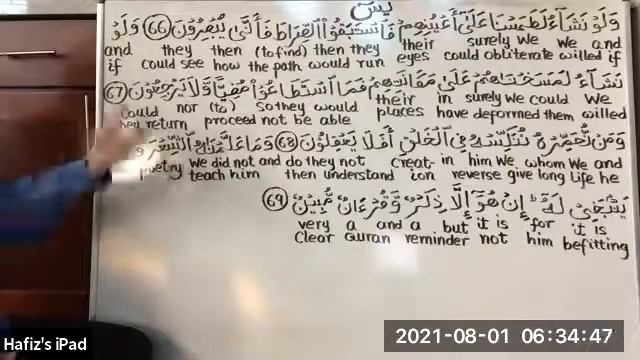 يٰسٓ
وَلَوْ نَشَآءُ لَطَمَسْنَا عَلَىٰٓ أَعْيُنِهِمْ فَاسْتَبَقُوا الصِّرَاطَ فَأَنَّىٰ يُبْصِرُونَ (66) وَلَوْ
and they then (to find) then they their surely We We and
if could see how the path would run eyes could obliterate willed if
نَشَآءُ لَمَسَخْنَاهُمْ عَلَىٰ مَكَانَتِهِمْ فَمَا اسْتَطَاعُوا مُضِيًّا وَّلَا يَرْجِعُونَ (67)
could nor (to) So they would their in surely We could We
they return proceed not be able places have deformed them willed
وَمَن نُّعَمِّرْهُ نُنَكِّسْهُ فِي الْخَلْقِ أَفَلَا يَعْقِلُونَ (68) وَمَا عَلَّمْنَاهُ الشِّعْرَ وَ
We did not and do they not creat- in him We whom We and
poetry teach him then understand ion reverse give long life he
يَنۢبَغِي لَهُ إِنْ هُوَ إِلَّا ذِكْرٌ وَّقُرْءَانٌ مُّبِينٌ (69)
very a and a but it is for it is
Clear Quran reminder not him befitting
2021-08-01 06:34:47
Hafiz's iPad